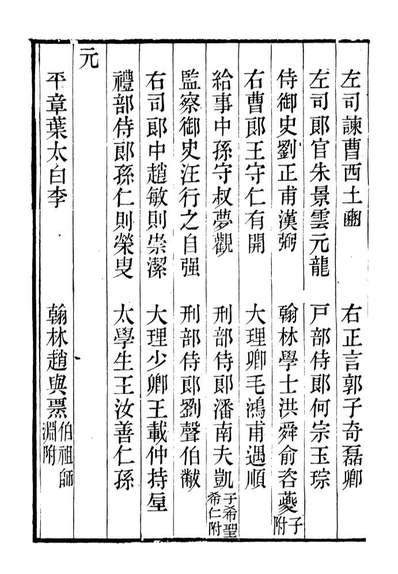 左司諫曹西土豳　右正言郭子奇磊卿
左司郎官朱景雲元龍　戸部侍郎何宗玉琮
侍御史劉正甫漢弼　翰林學士洪舜俞咨夔子附
右曹郎王守仁有開　大理卿毛鴻甫遇順
給事中孫守叔夢觀　刑部侍郎潘南夫凱子希聖希仁附
監察御史汪行之自强　刑部侍郎劉聲伯黻
右司郎中趙敏則崇潔　大理少卿王載仲持垕
禮部侍郎孫仁則榮叟　太學生王汝善仁孫
元
平章葉太白李　翰林趙與票伯祖師淵附